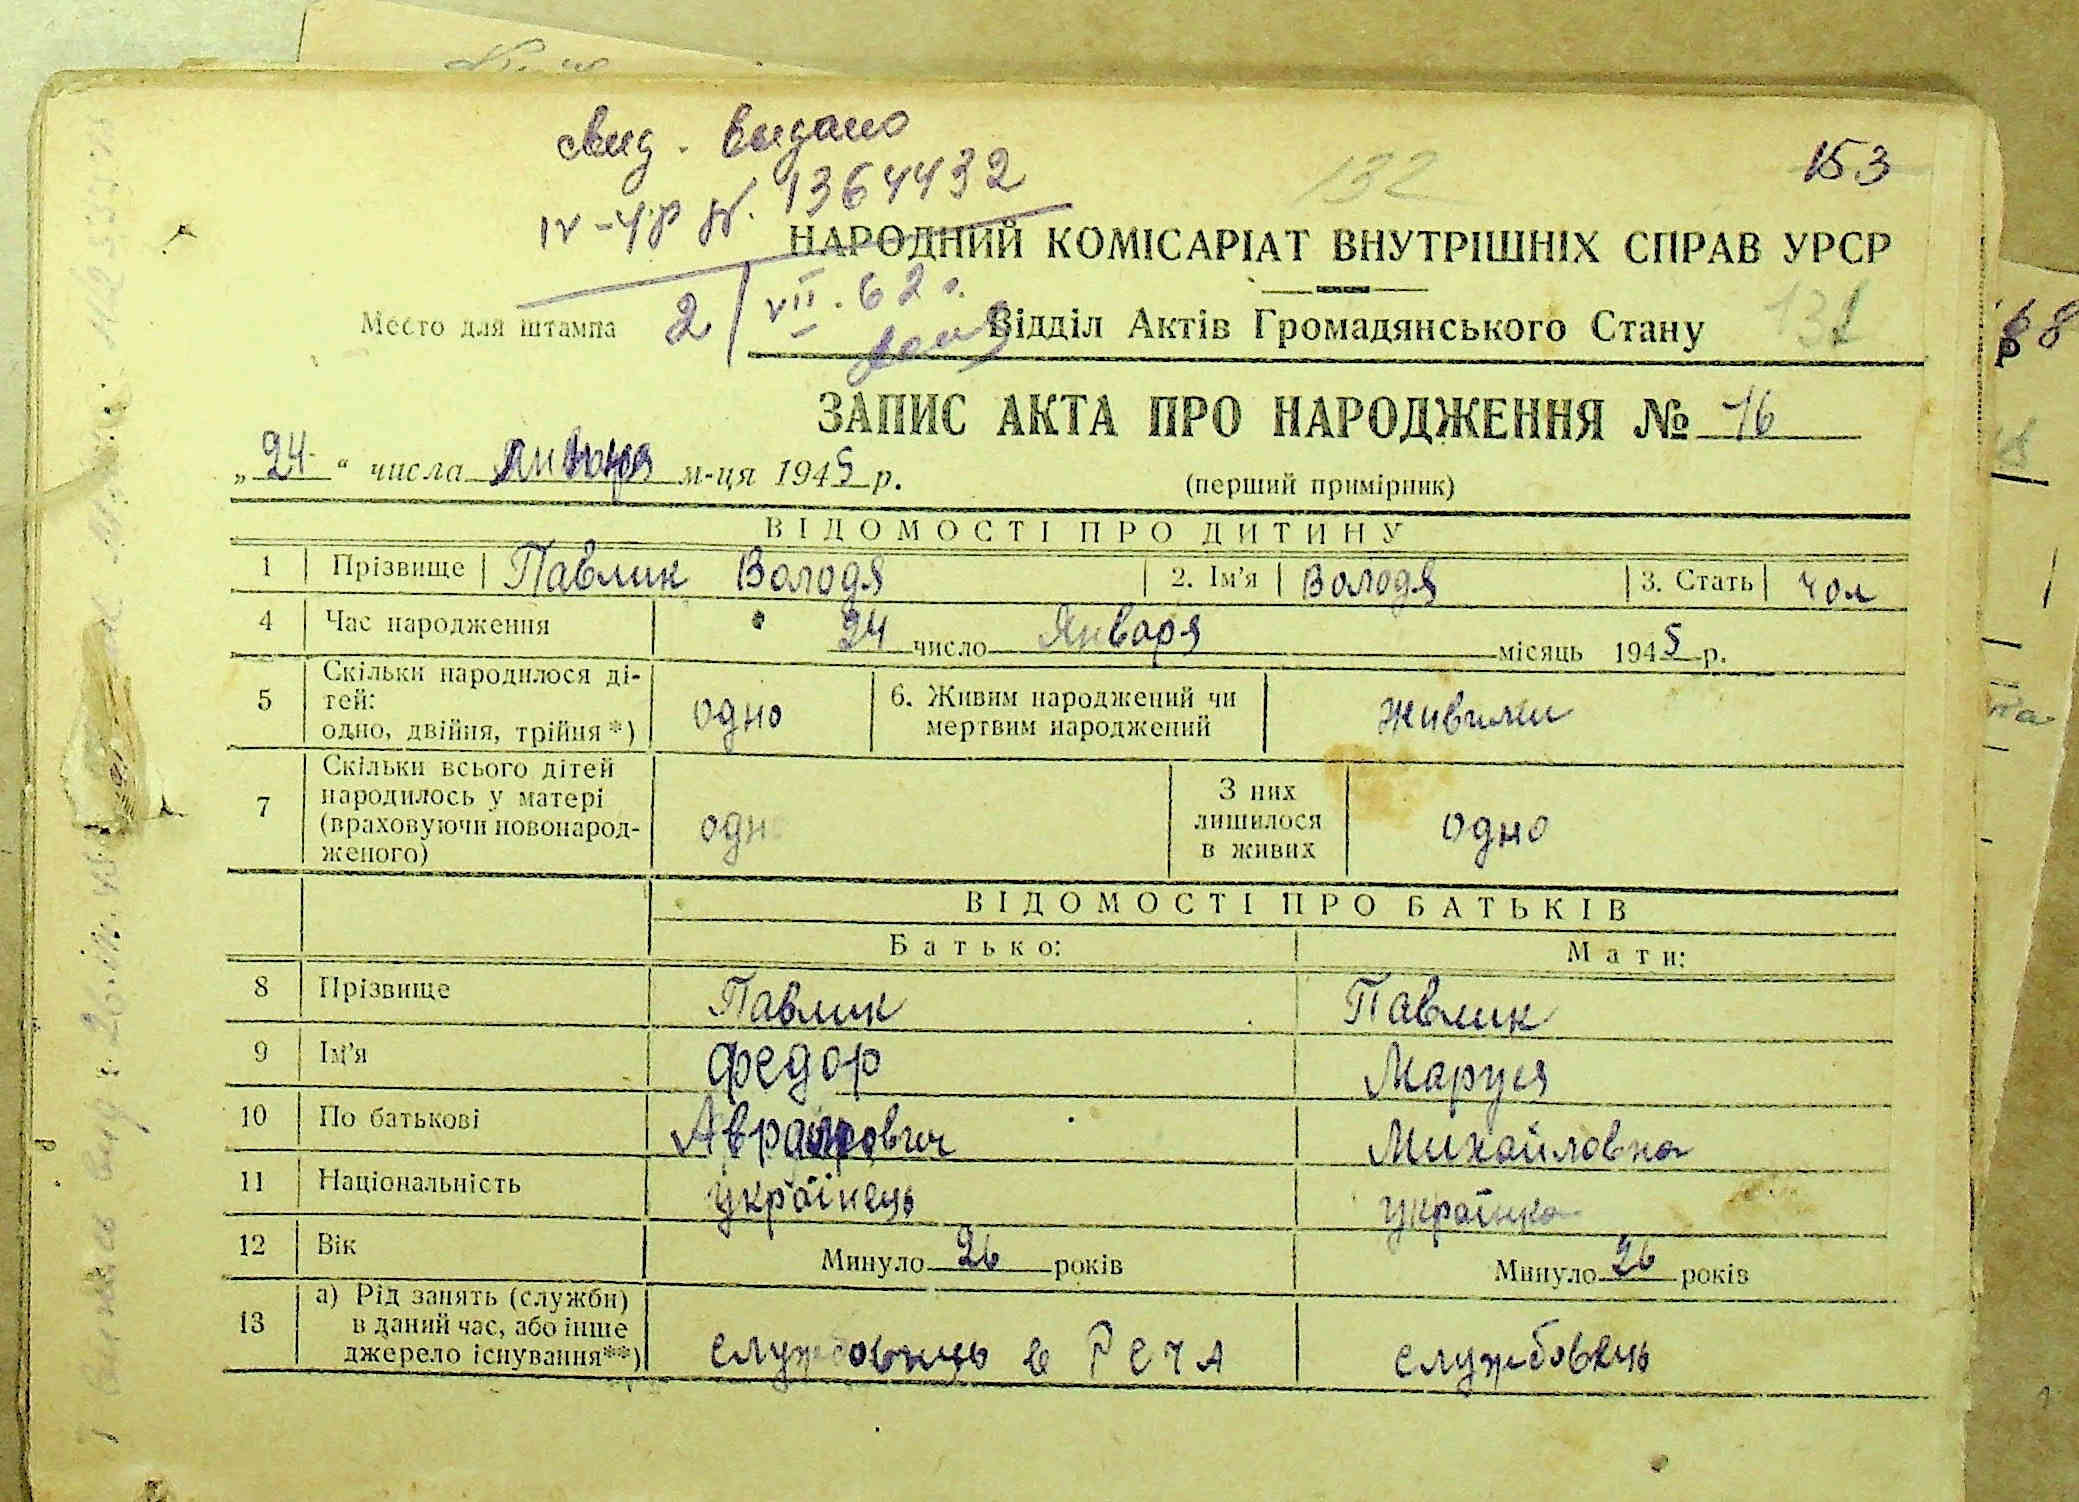 свид. видано
IV-УР №. 1364432
2/VII.62 г.
132
153
НАРОДНИЙ КОМІСАРІАТ ВНУТРІШНІХ СПРАВ УРСР
Место для штампа
Відділ Актів Громадянського Стану
132
ЗАПИС АКТА ПРО НАРОДЖЕННЯ № 16
„24" числа Января м-ця 1945 р.
(перший примірник)
ВІДОМОСТІ ПРО ДИТИНУ
1 Прізвище Павлик Володя 2. Ім'я Володя 3. Стать чол
4 Час народження 24 число Января місяць 1945 р.
5 Скільки народилося ді-
тей:
одно, двійня, трійня *) одно 6. Живим народжений чи
мертвим народжений живими
7 Скільки всього дітей
народилось у матері
(враховуючи новонарод-
женого) одно З них
лишилося
в живих одно
ВІДОМОСТІ ПРО БАТЬКІВ
Батько: Мати:
8 Прізвище Павлик Павлик
9 Ім'я Федор Маруся
10 По батькові Аврамович Михайловна
11 Національність українець українка
12 Вік Минуло 26 років Минуло 26 років
13 а) Рід занять (служби)
в даний час, або інше
джерело існування**) службовець в РСЧА службовець
68